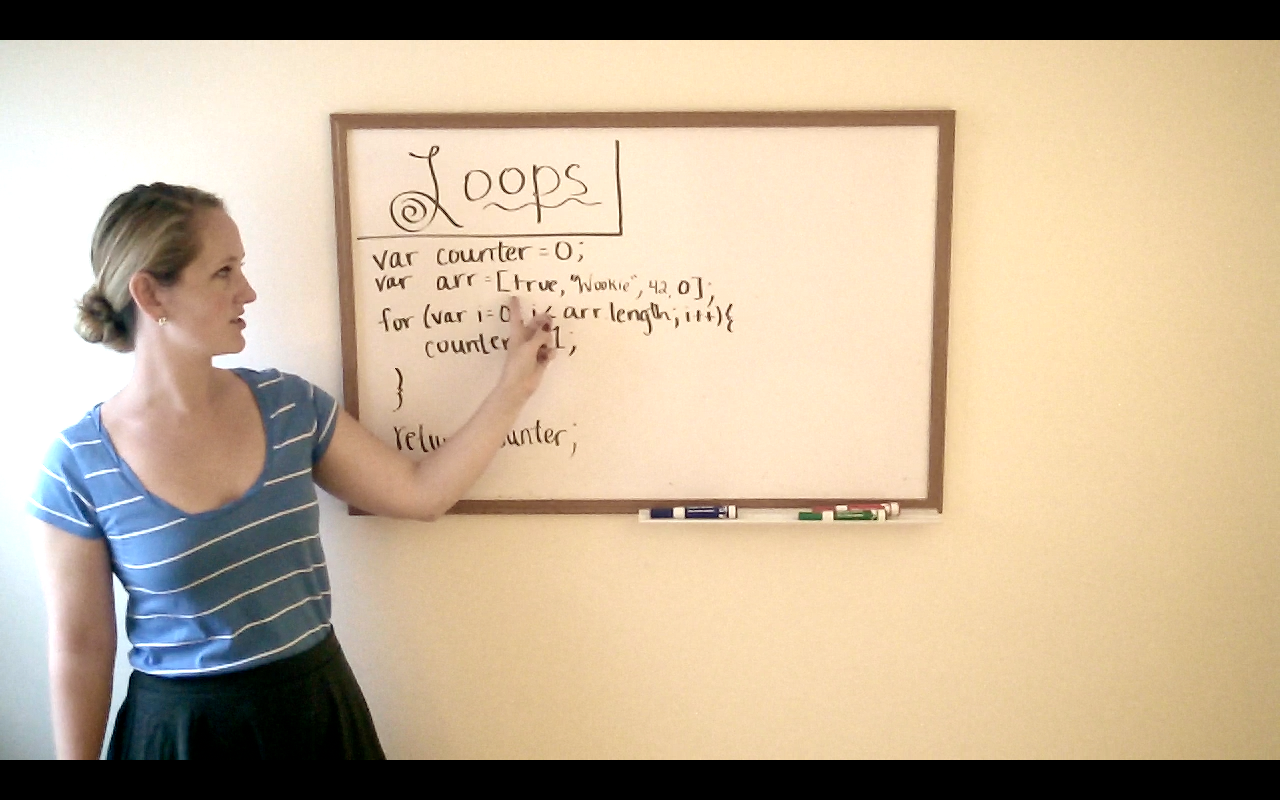 Loops
var counter = 0;
var arr = [true, "Wookie", 42, 0];
for (var i = 0 i < arr length; i++){
counter 1;
}
counter;